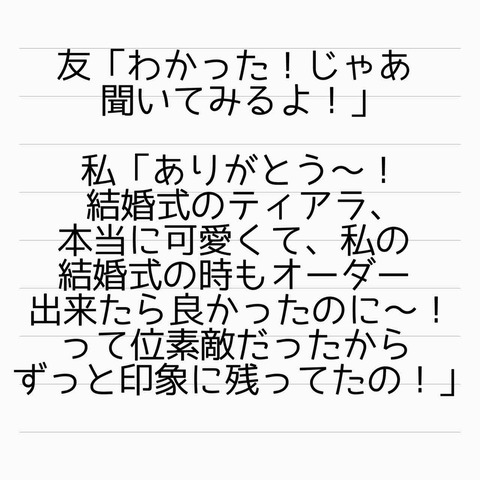 友「わかった！じゃあ
聞いてみるよ！」
私「ありがとう〜！
結婚式のティアラ、
本当に可愛くて、私の
結婚式の時もオーダー
出来たら良かったのに〜！
って位素敵だったから
ずっと印象に残ってたの！」